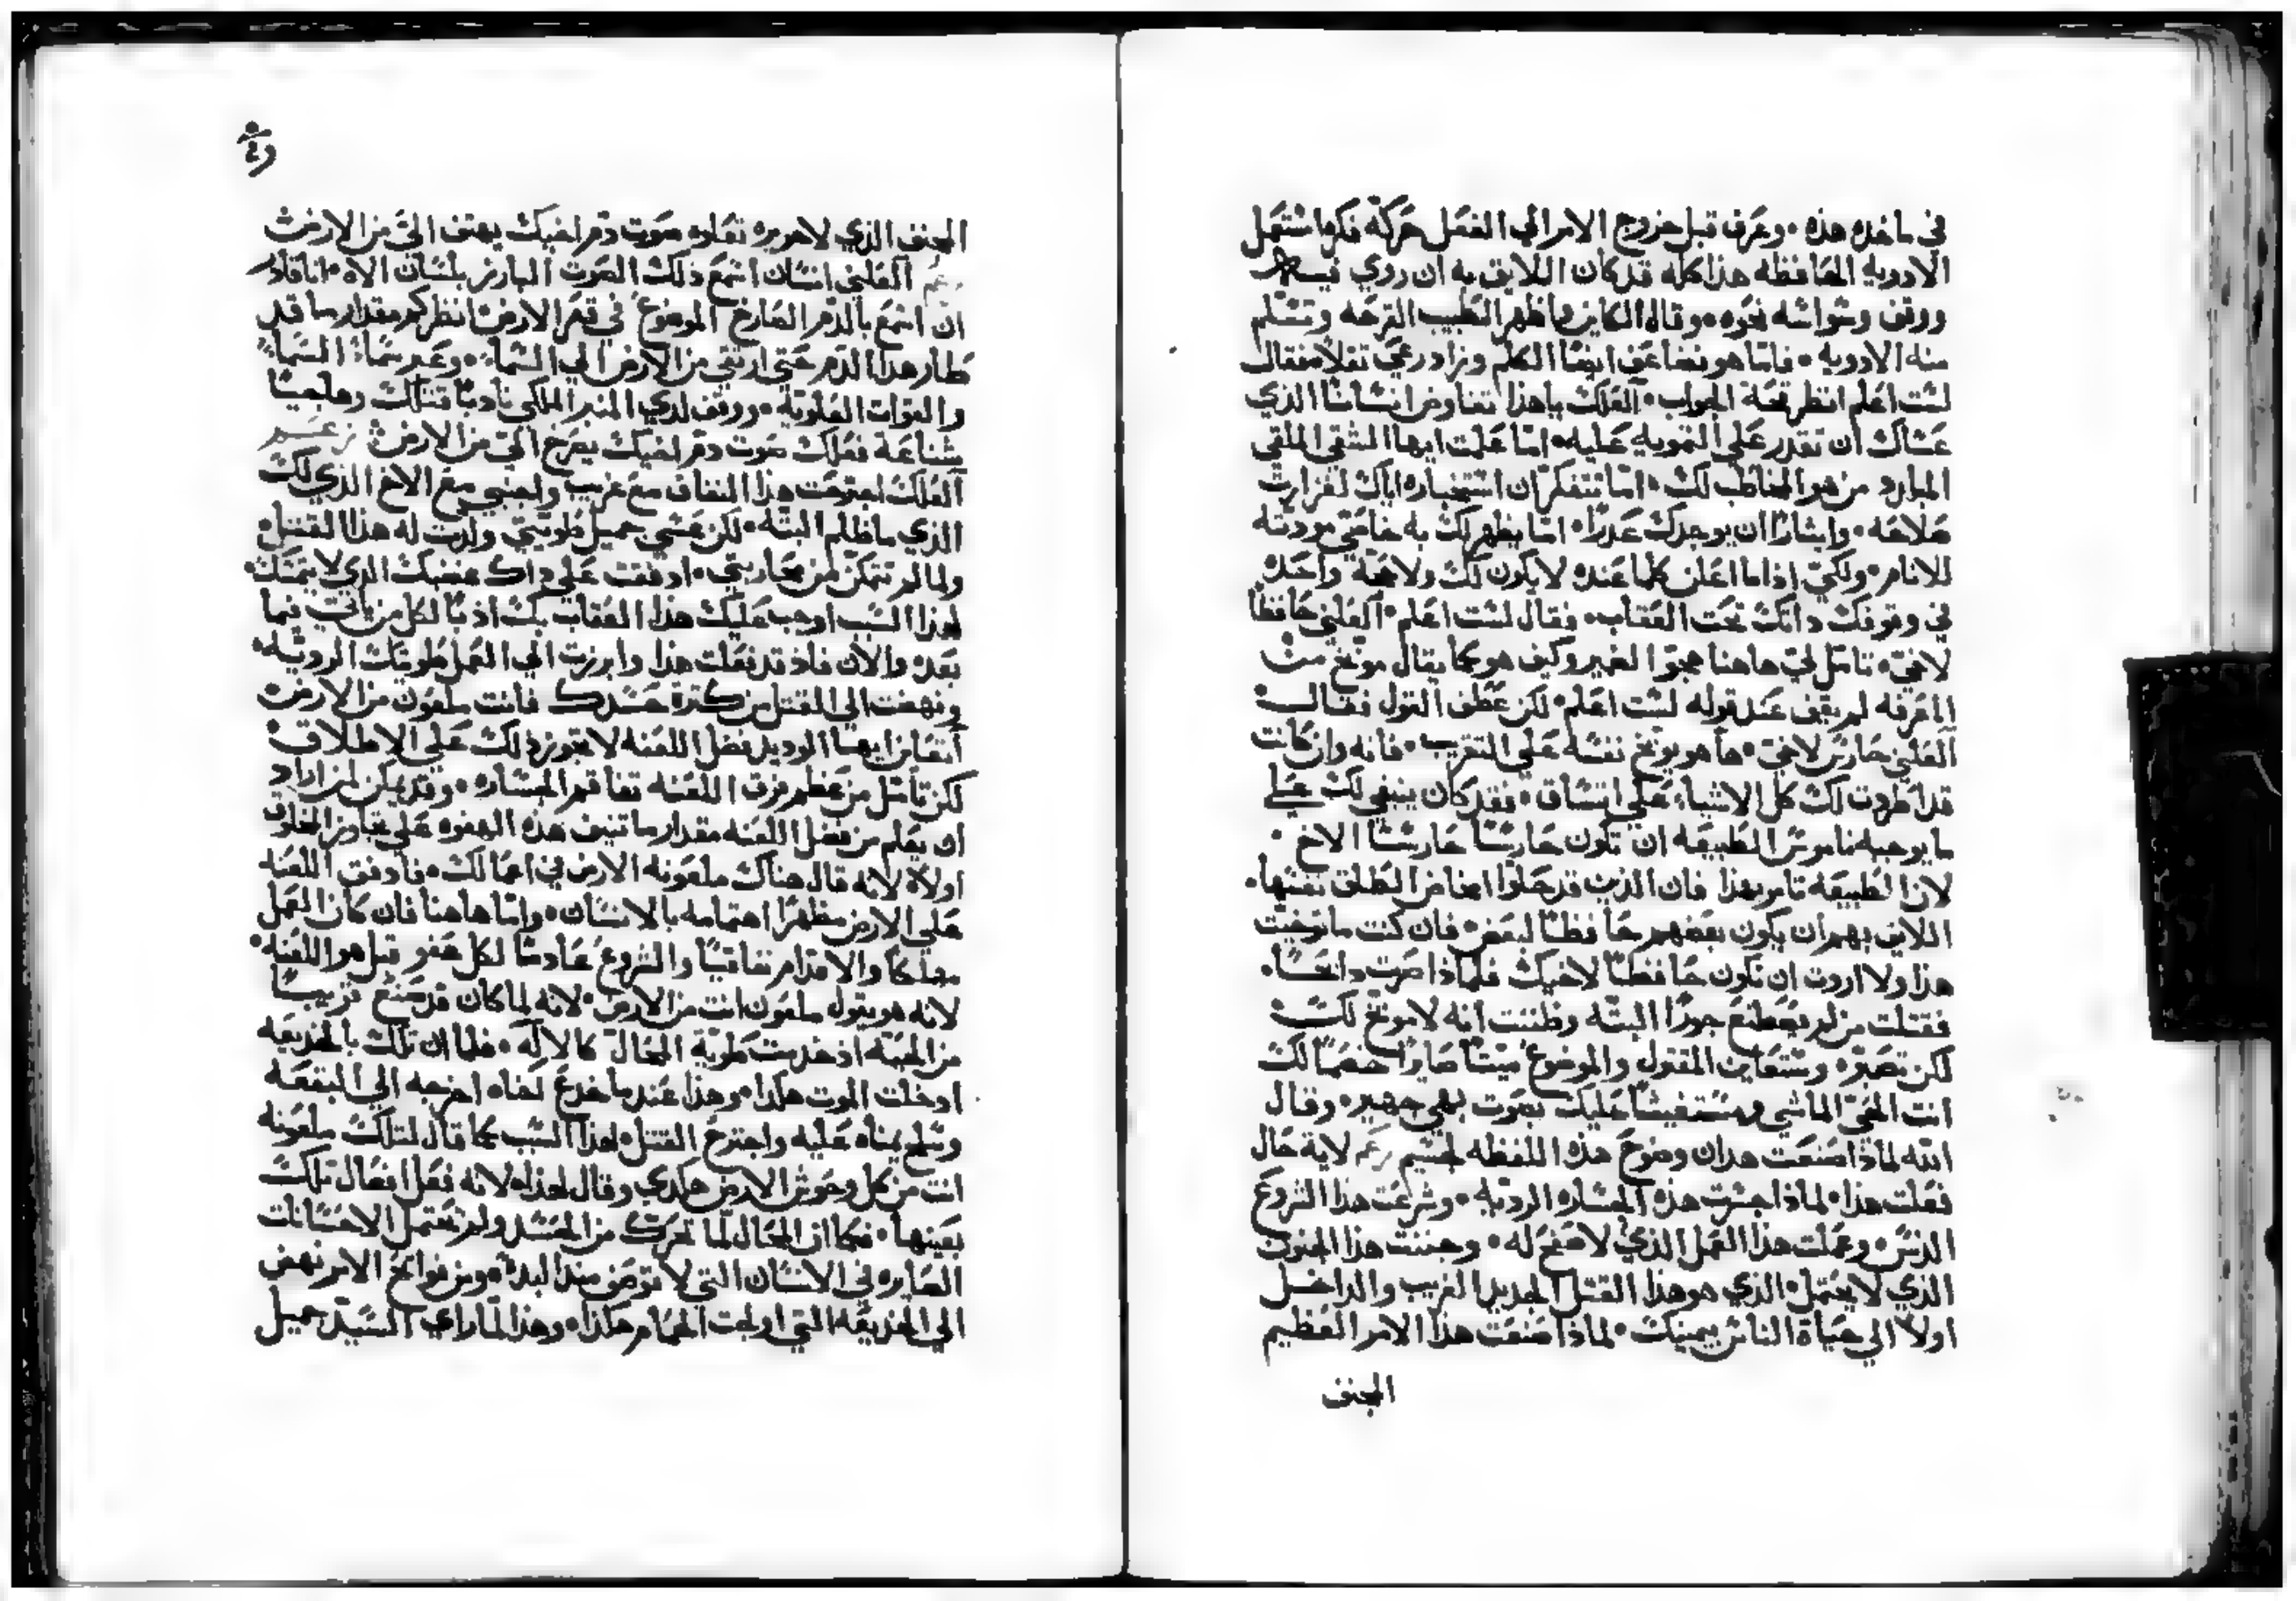 في ماخده هذه٠ وعرف قبل خروج الامر الي الفعل حركة فكرها استعمل
الادويه الحافظه هذا كله قد كان اللايق به ان روي فيه
ووقف وشواشه نحوه٠ وقال الكاين فاظهر الطبيب القرحه وتسلم
منه الادويه٠ فاما هو نضاعف ايضا الكلم وزاد رعي ثقلا فقال
لست اعلم انظر قحة الجواب٠ العلك ياهذا تفاوض انسانا الذي
عساك ان تقدر علي التمويه عليه٠ اما علمت ايها الشقي الملقي
المبارد من هو المخاطب لك٠ اما تتفكر ان استخباره اياك لغزارة
صلاحه٠ وايثارا ان يوجدك عذرا٠ اما يظهر لك به خاصي مودته
للانام٠ ولكي اذا ما اعلن كلما عنده لا يكون لك ولا حجة واحده
في وقوفك ذاتك تحت العقاب٠ فقال لست اعلم٠ العلني حافظا
لاخي٠ تامل لي هاهنا هجوا الضمير وكيف هو كما يقال موبخ من
المعرفه لم يقف عند قوله لست اعلم٠ لكن عطف القول فقال
العلني حارس لاخي٠ ها هو يوبخ نفسه علي التقريب٠ فانه وان كانت
قد اطردت لك كل الاشياء علي اتساق٠ فقد كان ينبغي لك علي
ما يوجبه ناموس الطبيعه ان تكون حارسا حارسا الاخ٠
لان الطبيعه تامر بهذا فان الذين قد حلوا امخاض الطلق نفسها٠
اللايق بهم ان يكون بعضهم حافظا لبعض٠ فان كنت ما توخيت
هذا ولا اردت ان تكون حافظا لاخيك فلماذا صرت دابحا٠
فقتلت من لم يصطنع جورا البته وظننت انه لا موبخ لك
لكن تصبر٠ وستعاين المقتول والموضوع ميتا صايرا خصما لك
انت الحي الماشي ومستغيثا عليك بصوت بهي جهير٠ وقال
الله لماذا صنعت هدا ان وضوح هذه اللفظه لجسيم زعم لاية حال
فعلت هذا٠ لماذا جسرت هذه الجساره الرديه٠ وشرعت هذا الشروع
الدنس٠ وعملت هذا العمل الذي لا صفح له٠ وجننت هذا الجنون
الذي لا يحتمل٠ الذي هو هذا القتل الجديد الغريب والداخل
اولا الي حياة الناس بيمينك٠ لماذا صنعت هذا الامر العظيم
الجنف
الجنف الذي لا مربره نقاده صوت دم اخيك يهتف الي من الارض
زعم العلني انسان اسمع ذلك الصوت البارز بلسان الاه٠ انا قادر
ان اسمع بالدم الصارخ الموضوع في قعر الارض٠ انظر كم مقدار ما قد
طار هذا الدم حتي ارتقي من الارض الي السماء٠ وعبر سماء السماء
والقوات العلويه٠ ووقف لدي المنبر الملكي نادبا قتلك وهاجيا
شناعة فعلك صوت دم اخيك يصرخ الي من الارض زعم
العلك اجترحت هذا النفاق مع غريب واجنبي مع الاخ الذي لك
الذي ما ظلم البته٠ لكن عسي جميل طويتي ولدت له هذا القتل٠
ولما لم تتمكن من محاربتي٠ ادفقت علي داك غضبك الذي لا يمسك٠
لهذا السبب اوجب عليك هذا العقاب بك ادبا لكل من ياتي فيما
بعد٠ والان فاذ قد فعلت هذا وابرزت الي العمل طويتك الرديه٠
ونهضت الي القتل من كثرة حسدك فانت ملعون من الارض٠
اتعاين ايها الوديد فضل اللعنه لا تجوز ذلك علي الاطلاق٠
لكن تامل من عظم فرق اللعنه تفاقم الجساره٠ وقد يمكن لمن اراد
ان يعلم من فضل اللعنه مقدار ما تنيف هذه الهفوه علي تجاوز المخلوق
اولا٠ لانه قال هناك ملعونه الارض في اعمالك٠ فادفق اللعنه
علي الارض مظهرا اهتمامه بالانسان٠ واما هاهنا فان كان العمل
مهلكا والاقدام نفاقيا والشروع عادما لكل عفو قبل هو اللعنه٠
لانه هو يقول ملعون انت من الارض٠ لانه لما كان قد صنع قريبا
من الحيه اذ خدمت طوية المحال كالاله٠ فلما ان تلك بالخديعه
ادخلت الموت هكذا٠ وهذا عند ما خدع لخاه اخرجه الي البقعه
وسلح يمناه عليه واجترح القتل٠ لهذا السبب كما قال لتلك ملعونه
انت من كل وحوش الارض هكدي وقال لهذا٠ لانه فعل افعال تلك
بعينها٠ فكما ان المحال لما تحرك من الحسد ولم يحتمل الاحسانات
الصايره في الانسان التي لا توصف منذ البدء٠ ومن فواتح الامر نهض
الي الخديعه التي اولجت الحمام هكذا٠ وهذا لما راي السيد جميل